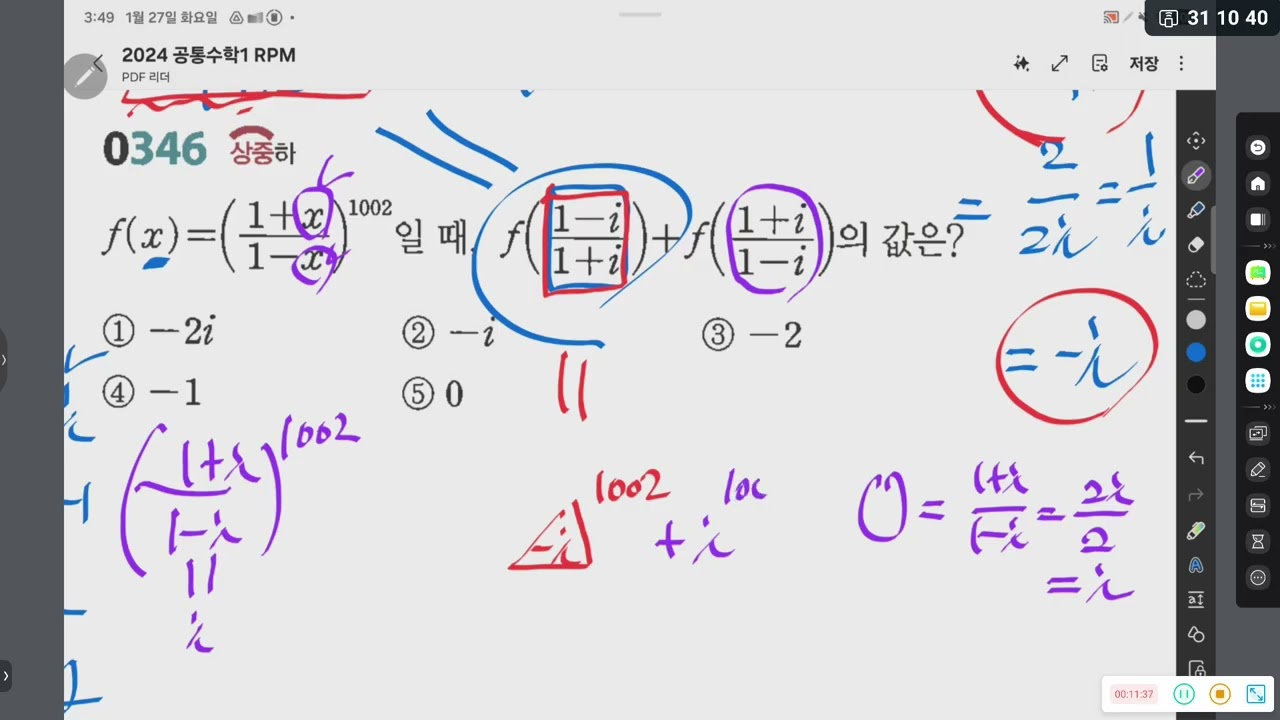 3:49 1월 27일 화요일
31 10 40
2024 공통수학1 RPM
PDF 리더
저장
0346 상중하
f(x)=((1+x)/(1-x))^1002 일 때, f((1-i)/(1+i))+f((1+i)/(1-i))의 값은?
= 2/2i = 1/i
= -i
① -2i ② -i ③ -2
④ -1 ⑤ 0
((1+i)/(1-i))^1002
i
-i 1002 + i 100
= (1+i)/(1-i) = 2i/2
= i
00:11:37